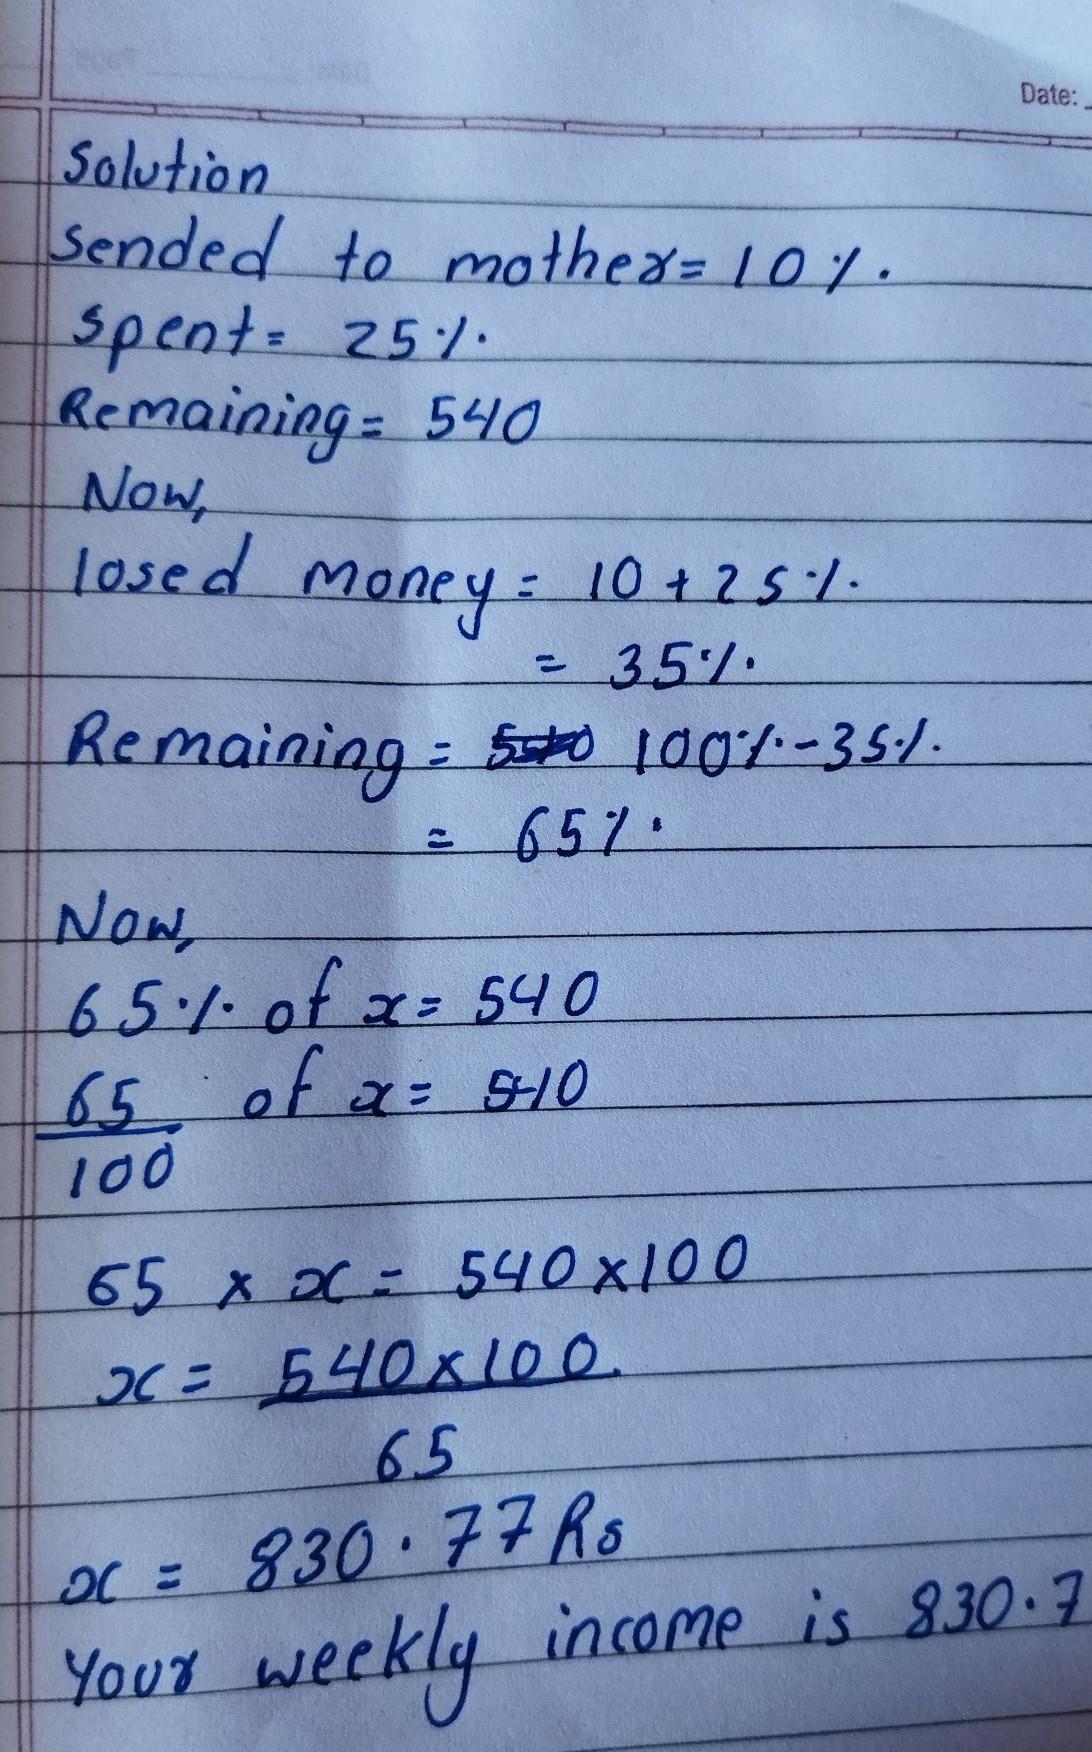 Date:
Solution
Sended to mother = 10%.
Spent = 25%.
Remaining = 540
Now,
losed money = 10 + 25%.
= 35%.
Remaining = 100% - 35%.
= 65%.
Now,
65% of x = 540
65/100 of x = 540
65 × x = 540 × 100
x = 540 × 100
65
x = 830.77 Rs
Your weekly income is 830.7